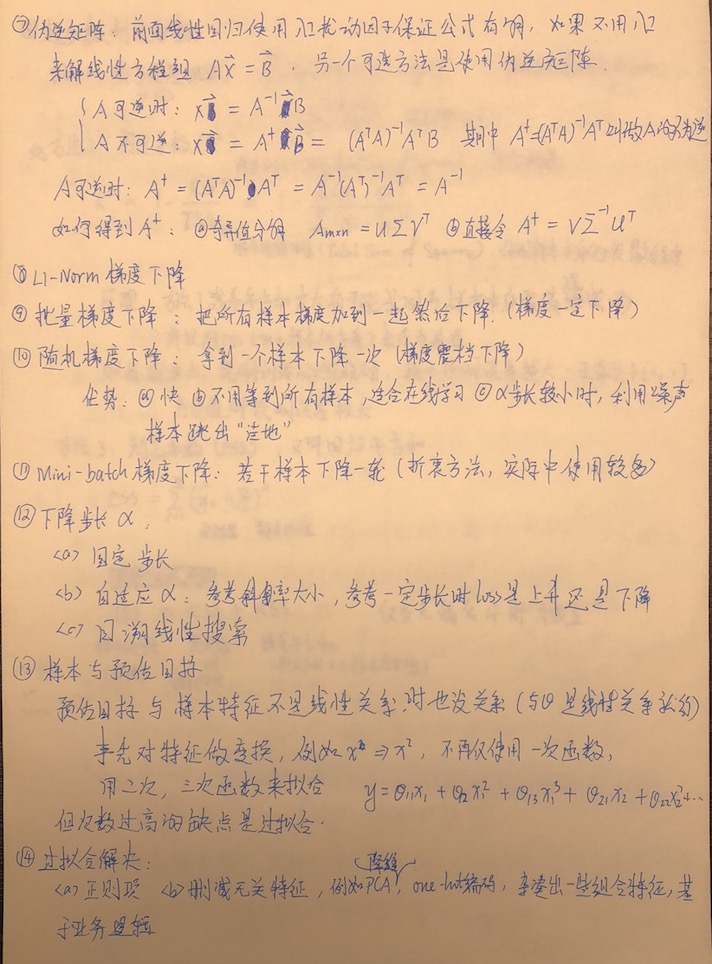 ⑦ 伪逆矩阵：前面线性回归使用λI扰动因子保证公式有解，如果不用λI
来解线性方程组 Ax⃗ = B⃗ ，另一个可选方法是使用伪逆矩阵.
A可逆时：x⃗ = A⁻¹B⃗
A不可逆：x⃗ = A⁺B⃗ = (AᵀA)⁻¹AᵀB 其中 A⁺=(AᵀA)⁻¹Aᵀ叫做A的伪逆
A可逆时：A⁺ = (AᵀA)⁻¹Aᵀ = A⁻¹(Aᵀ)⁻¹Aᵀ = A⁻¹
如何得到A⁺：ⓐ奇异值分解 Amxn = UΣVᵀ ⓑ直接令 A⁺ = VΣ⁻¹Uᵀ
⑧ L1-Norm 梯度下降
⑨ 批量梯度下降：把所有样本梯度加到一起然后下降.（梯度一定下降）
⑩ 随机梯度下降：拿到一个样本下降一次（梯度震档下降）
优势：ⓐ快 ⓑ不用等到所有样本，适合在线学习 ⓒα步长较小时，利用噪声
样本跳出“洼地”
⑪ Mini-batch 梯度下降：若干样本下降一轮（折衷方法，实际中使用较多）
⑫ 下降步长 α，
<a> 固定步长
<b> 自适应α：参考斜率大小，参考一定步长时loss是上升还是下降
<c> 回溯线性搜索
⑬ 样本与预估目标
预估目标与样本特征不是线性关系时也没关系（与θ是线性关系就行）
事先对特征做变换，例如x ⇒ x²，不再仅使用一次函数，
用二次，三次函数来拟合 y = θ₁₁x₁ + θ₁₂x₁² + θ₁₃x₁³ + θ₂₁x₂ + θ₂₂x₂²+…
但次数过高的缺点是过拟合.
⑭ 过拟合解决：
<a> 正则项 <b> 删减无关特征，例如PCA降维，one-hot编码，拼凑出一些组合特征，基
于业务逻辑